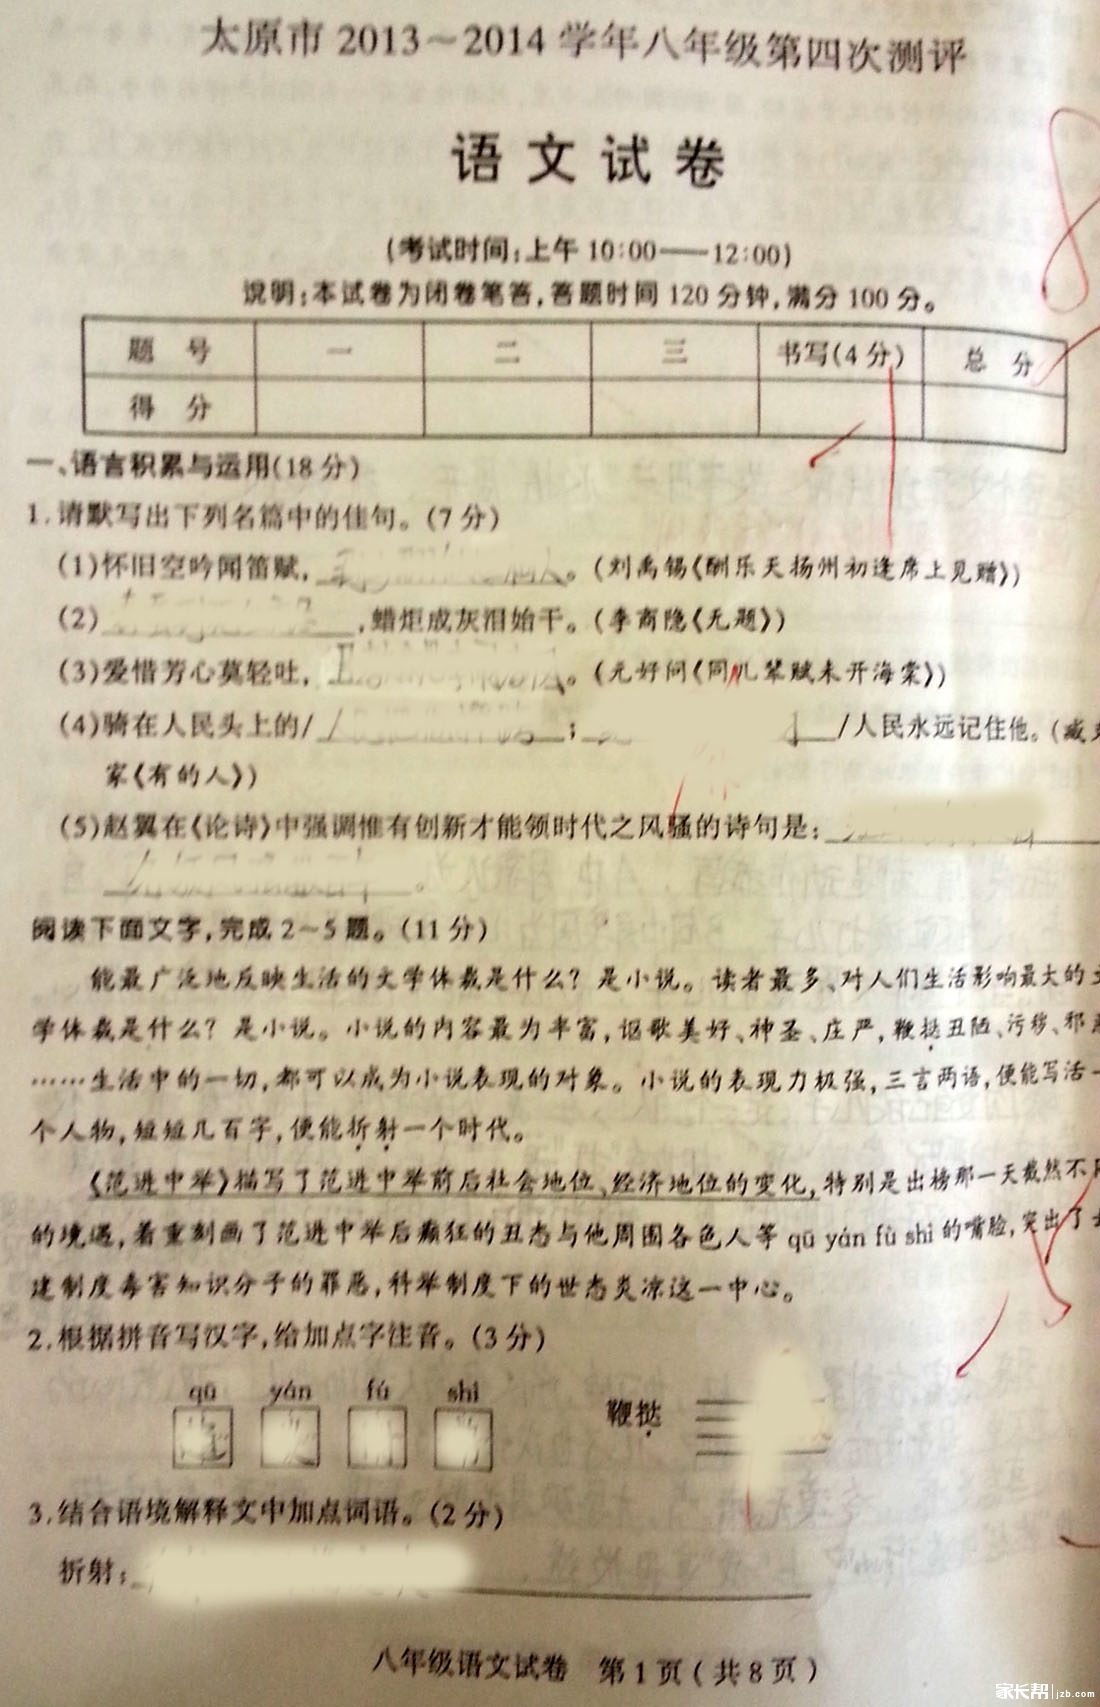 太原市2013~2014学年八年级第四次测评
语文试卷
(考试时间:上午10:00——12:00)
说明:本试卷为闭卷笔答,答题时间120分钟,满分100分。
题 号 一 二 三 书写(4分) 总 分
得 分
一、语言积累与运用(18分)
1.请默写出下列名篇中的佳句。(7分)
(1)怀旧空吟闻笛赋,。(刘禹锡《酬乐天扬州初逢席上见赠》)
(2),蜡炬成灰泪始干。(李商隐《无题》)
(3)爱惜芳心莫轻吐,。(元好问《同儿辈赋未开海棠》)
(4)骑在人民头上的/;/人民永远记住他。(臧克
家《有的人》)
(5)赵翼在《论诗》中强调惟有创新才能领时代之风骚的诗句是:
。
阅读下面文字,完成2~5题。(11分)
能最广泛地反映生活的文学体裁是什么?是小说。读者最多、对人们生活影响最大的
学体裁是什么?是小说。小说的内容最为丰富,讴歌美好、神圣、庄严,鞭挞丑陋、污秽、邪
……生活中的一切,都可以成为小说表现的对象。小说的表现力极强,三言两语,便能写活一
个人物,短短几百字,便能折射一个时代。
《范进中举》描写了范进中举前后社会地位、经济地位的变化,特别是出榜那一天截然不
的境遇,着重刻画了范进中举后癫狂的丑态与他周围各色人等qū yán fù shì的嘴脸,突出了
建制度毒害知识分子的罪恶,科举制度下的世态炎凉这一中心。
2.根据拼音写汉字,给加点字注音。(3分)
qū yán fù shì
鞭挞
3.结合语境解释文中加点词语。(2分)
折射:
八年级语文试卷 第1页(共8页)
家长帮 jzb.com